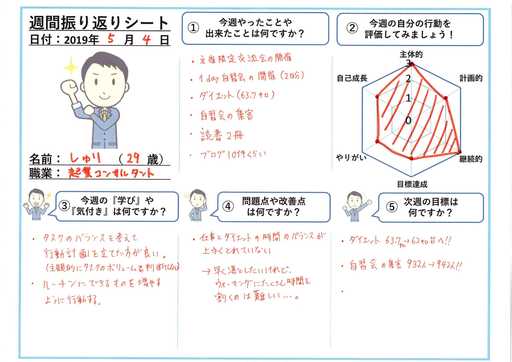 週間振り返りシート
日付:2019年 5 月 4 日
名前: しゅり (29 歳)
職業: 起業コンサルタント
① 今週やったことや
出来たことは何ですか?
・主催限定交流会の開催
・1day自習会の開催(2回)
・ダイエット(63.7キロ)
・自習会の集客
・読書2冊
・ブログ10件くらい
② 今週の自分の行動を
評価してみましょう!
主体的
計画的
継続的
目標達成
やりがい
自己成長
3
2
1
0
③ 今週の『学び』や
『気付き』は何ですか?
・タスクのバランスを考えて
行動計画を立てた方が良い。
・ルーチンにできるものを増やす
ように行動する。
④ 問題点や改善点
は何ですか?
・仕事とダイエットの時間のバランスが
上手くとれていない
→ 早く落としたいけれど、
ウォーキングにたくさん時間を
割くのは難しい…。
⑤ 次週の目標は
何ですか?
・ダイエット 63.7
・自習会の集客 932人→942人!!